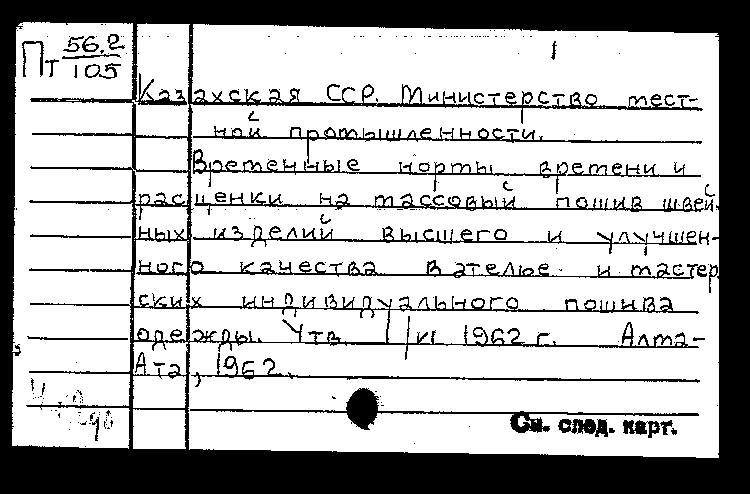 Пт 56.2/105
1
Казахская ССР. Министерство мест-
ной промышленности.
Временные нормы времени и
расценки на массовый пошив швей-
ных изделий высшего и улучшен-
ного качества в ателье и мастер
ских индивидуального пошива
одежды. Утв. 1/VI 1962 г. Алма-
Ата, 1962.
См. след. карт.